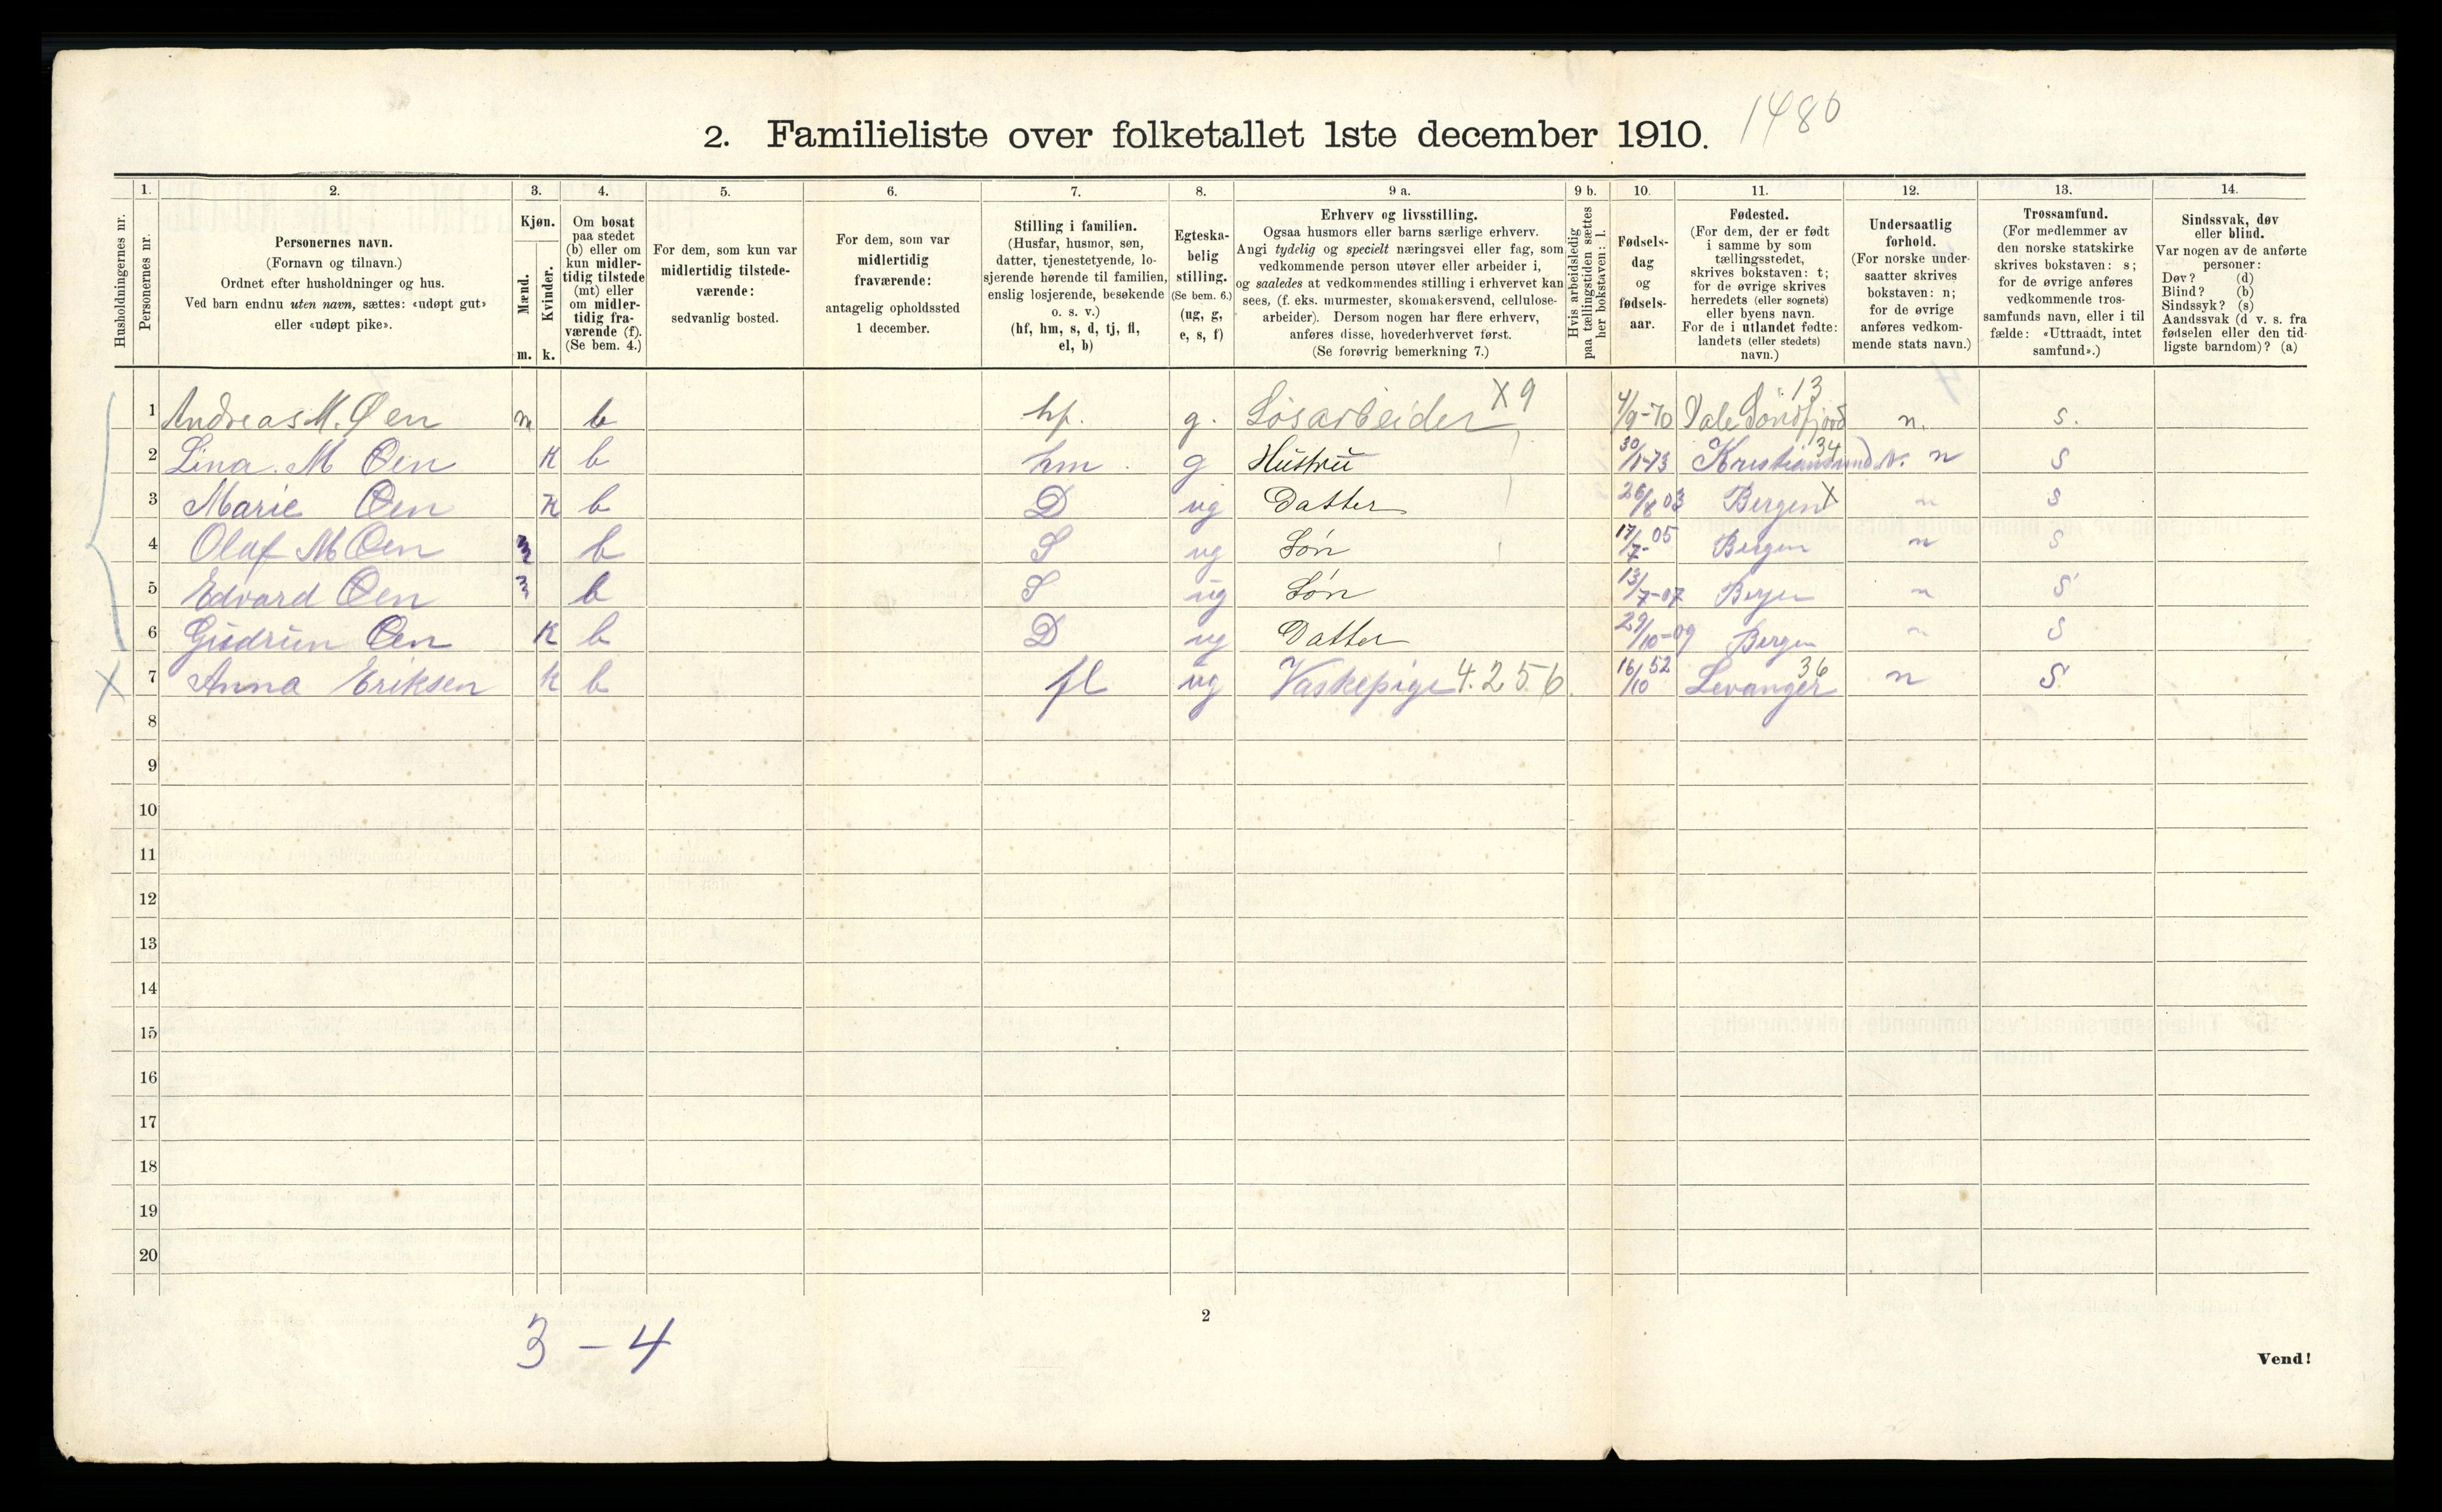 2. Familieliste over folketallet 1ste december 1910. 1480
Husholdningernes nr.
1. Personernes nr.
2. Personernes navn. (Fornavn og tilnavn.) Ordnet efter husholdninger og hus. Ved barn endnu uten navn, sættes: «udøpt gut» eller «udøpt pike».
3. Kjøn. Mænd. m. Kvinder. k.
4. Om bosat paa stedet (b) eller om kun midlertidig tilstede (mt) eller om midlertidig fraværende (f). (Se bem. 4.)
5. For dem, som kun var midlertidig tilstedeværende: sedvanlig bosted.
6. For dem, som var midlertidig fraværende: antagelig opholdssted 1 december.
7. Stilling i familien. (Husfar, husmor, søn, datter, tjenestetyende, losjerende hørende til familien, enslig losjerende, besøkende o. s. v.) (hf, hm, s, d, tj, fl, el, b)
8. Egteskabelig stilling. (Se bem. 6.) (ug, g, e, s, f)
9 a. Erhverv og livsstilling. Ogsaa husmors eller barns særlige erhverv. Angi tydelig og specielt næringsvei eller fag, som vedkommende person utøver eller arbeider i, og saaledes at vedkommendes stilling i erhvervet kan sees, (f. eks. murmester, skomakersvend, cellulosearbeider). Dersom nogen har flere erhverv, anføres disse, hovederhvervet først. (Se forøvrig bemerkning 7.)
9 b. Hvis arbeidsledig paa tællingstiden sættes her bokstaven: l.
10. Fødselsdag og fødselsaar.
11. Fødested. (For dem, der er født i samme by som tællingsstedet, skrives bokstaven: t; for de øvrige skrives herredets (eller sognets) eller byens navn. For de i utlandet fødte: landets (eller stedets) navn.)
12. Undersaatlig forhold. (For norske undersaatter skrives bokstaven: n; for de øvrige anføres vedkommende stats navn.)
13. Trossamfund. (For medlemmer av den norske statskirke skrives bokstaven: s; for de øvrige anføres vedkommende trossamfunds navn, eller i tilfælde: «Uttraadt, intet samfund».)
14. Sindssvak, døv eller blind. Var nogen av de anførte personer: Døv? (d) Blind? (b) Sindssyk? (s) Aandssvak (d. v. s. fra fødselen eller den tidligste barndom)? (a)
1 Andreas M. Øen m b hf. g. Løsarbeider X9 4/9-70 Dale Søndfjord 13 n. s.
2 Lina. M Øen K b hm. g Hustru 30/1-73 Kristiansund N. 34 n S
3 Marie Øen K b D ug Datter 26/8 03 Bergen X n S
4 Olaf M Øen m b S ug Søn 17/7-05 Bergen n S
5 Edvard Øen m b S ug Søn 13/7-07 Bergen n S
6 Gudrun Øen K b D ug Datter 29/10-09 Bergen n S
X 7 Anna Eriksen K b fl ug Vaskepige 4.256. 16/10 52 Levanger 36 n S
8
9
10
11
12
13
14
15
16
17
18
19
20
2
3 - 4
Vend!